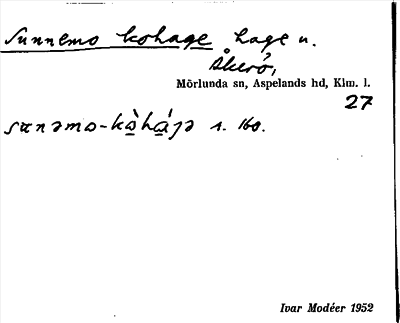 Sunnemo kohage hage u.
Åkerö,
Mörlunda sn, Aspelands hd, Klm. l.
27
sunəmo-kòhágə s. 160.
Ivar Modéer 1952